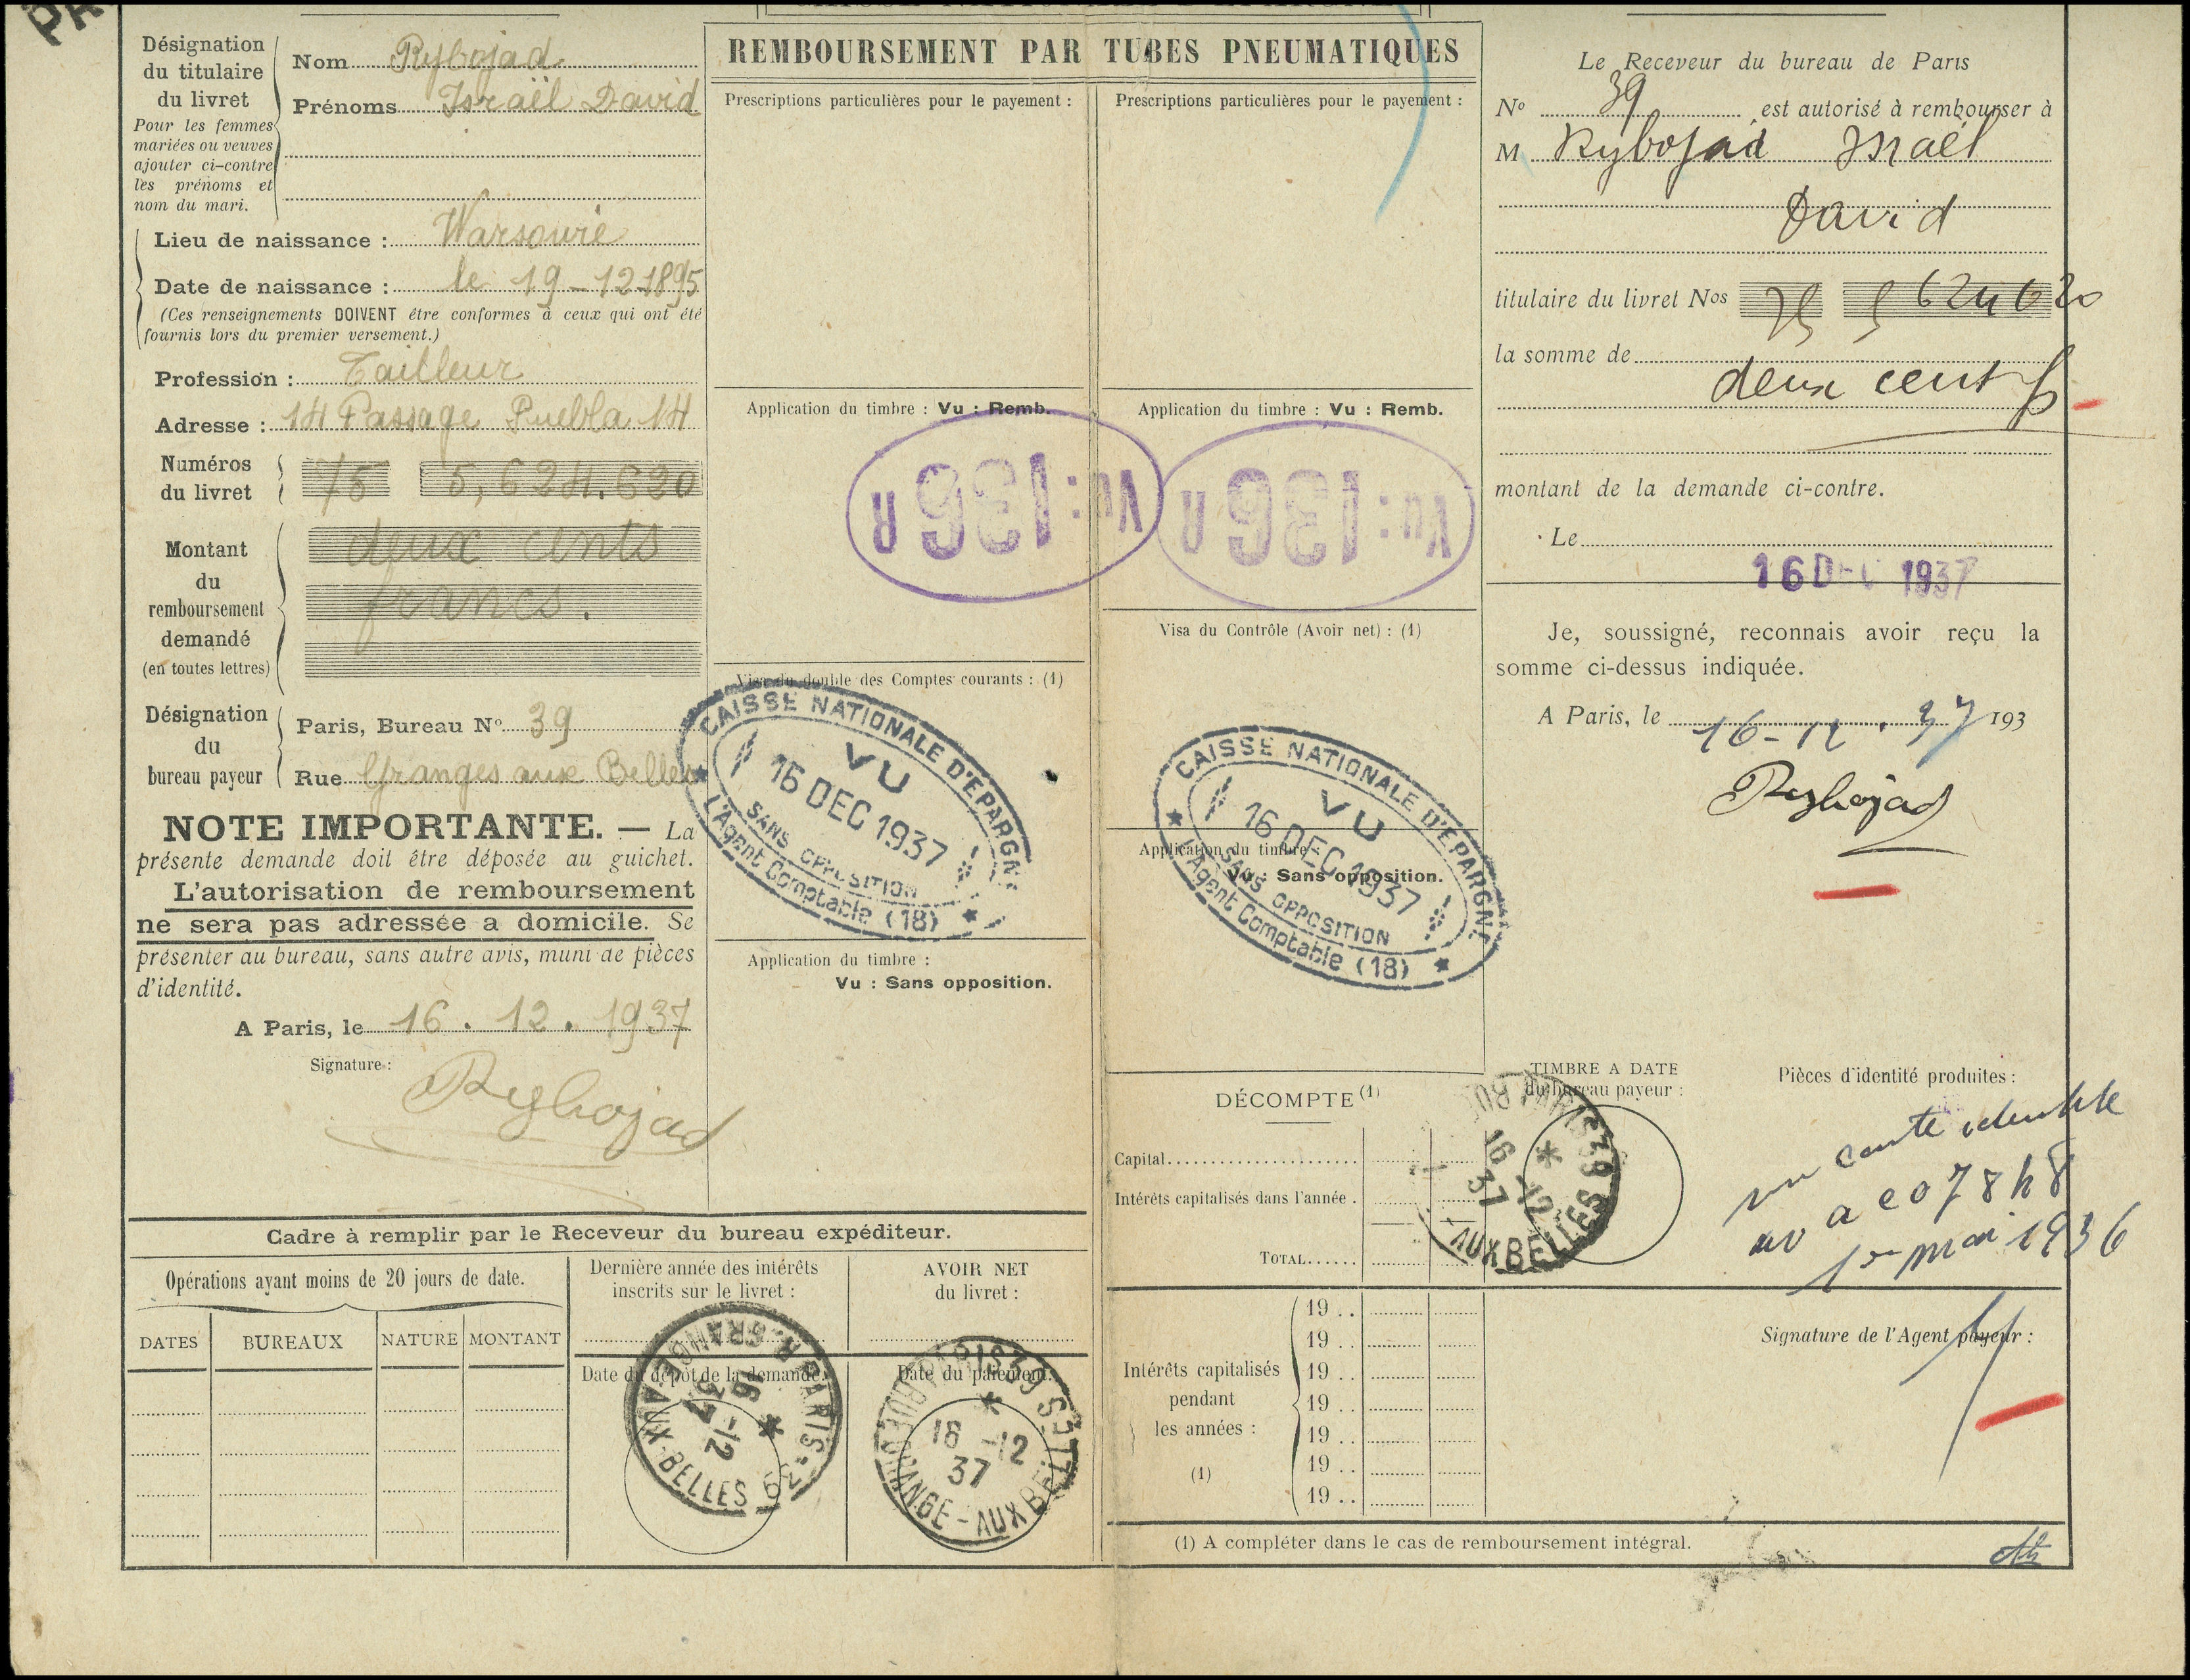 PR
REMBOURSEMENT PAR TUBES PNEUMATIQUES
Désignation
du titulaire
du livret
Pour les femmes
mariées ou veuves
ajouter ci-contre
les prénoms et
nom du mari.
Nom Rybojad
Prénoms Israël David
Lieu de naissance : Warsowie
Date de naissance : le 19-12-1895
(Ces renseignements DOIVENT être conformes à ceux qui ont été
fournis lors du premier versement.)
Profession : Tailleur
Adresse : 14 Passage Puebla 14
Numéros
du livret
75 5,624.620
Montant
du
remboursement
demandé
(en toutes lettres)
deux cents
francs.
Désignation
du
bureau payeur
Paris, Bureau No 39
Rue Granges aux Belles
NOTE IMPORTANTE. — La
présente demande doit être déposée au guichet.
L'autorisation de remboursement
ne sera pas adressée a domicile. Se
présenter au bureau, sans autre avis, muni de pièces
d'identité.
A Paris, le 16.12.1937
Signature :
Rybojad
Cadre à remplir par le Receveur du bureau expéditeur.
Opérations ayant moins de 20 jours de date.
DATES BUREAUX NATURE MONTANT
Dernière année des intérêts
inscrits sur le livret :
AVOIR NET
du livret :
Date du dépôt de la demande.
PARIS-39
R. GRANGE-AUX-BELLES
16 -12
37
Date du paiement.
PARIS 39
RUE GRANGE-AUX BELLES
16 -12
37
Prescriptions particulières pour le payement :
Application du timbre : Vu : Remb.
Vu : 136 R
Visa du double des Comptes courants : (1)
CAISSE NATIONALE D'EPARGNE
VU
16 DEC 1937
SANS OPPOSITION
L'Agent Comptable (18)
Application du timbre :
Vu : Sans opposition.
Prescriptions particulières pour le payement :
Application du timbre : Vu : Remb.
Vu : 136 R
Visa du Contrôle (Avoir net) : (1)
CAISSE NATIONALE D'EPARGNE
VU
16 DEC 1937
SANS OPPOSITION
L'Agent Comptable (18)
Application du timbre :
Vu : Sans opposition.
DÉCOMPTE (1)
Capital
Intérêts capitalisés dans l'année .
TOTAL
Intérêts capitalisés
pendant
les années :
(1)
19 . .
19 . .
19 . .
19 . .
19 . .
19 . .
19 . .
(1) A compléter dans le cas de remboursement intégral.
Le Receveur du bureau de Paris
No 39 est autorisé à rembourser à
M Rybojad Israël
David
titulaire du livret Nos 75 5 624620
la somme de
deux cent f
montant de la demande ci-contre.
Le
16 DEC 1937
Je, soussigné, reconnais avoir reçu la
somme ci-dessus indiquée.
A Paris, le 16-12.37 193
Rybojad
TIMBRE A DATE
du bureau payeur :
PARIS 39
AUX BELLES
16 -12
37
Pièces d'identité produites :
carte identité
1er mai 1936
Signature de l'Agent payeur :